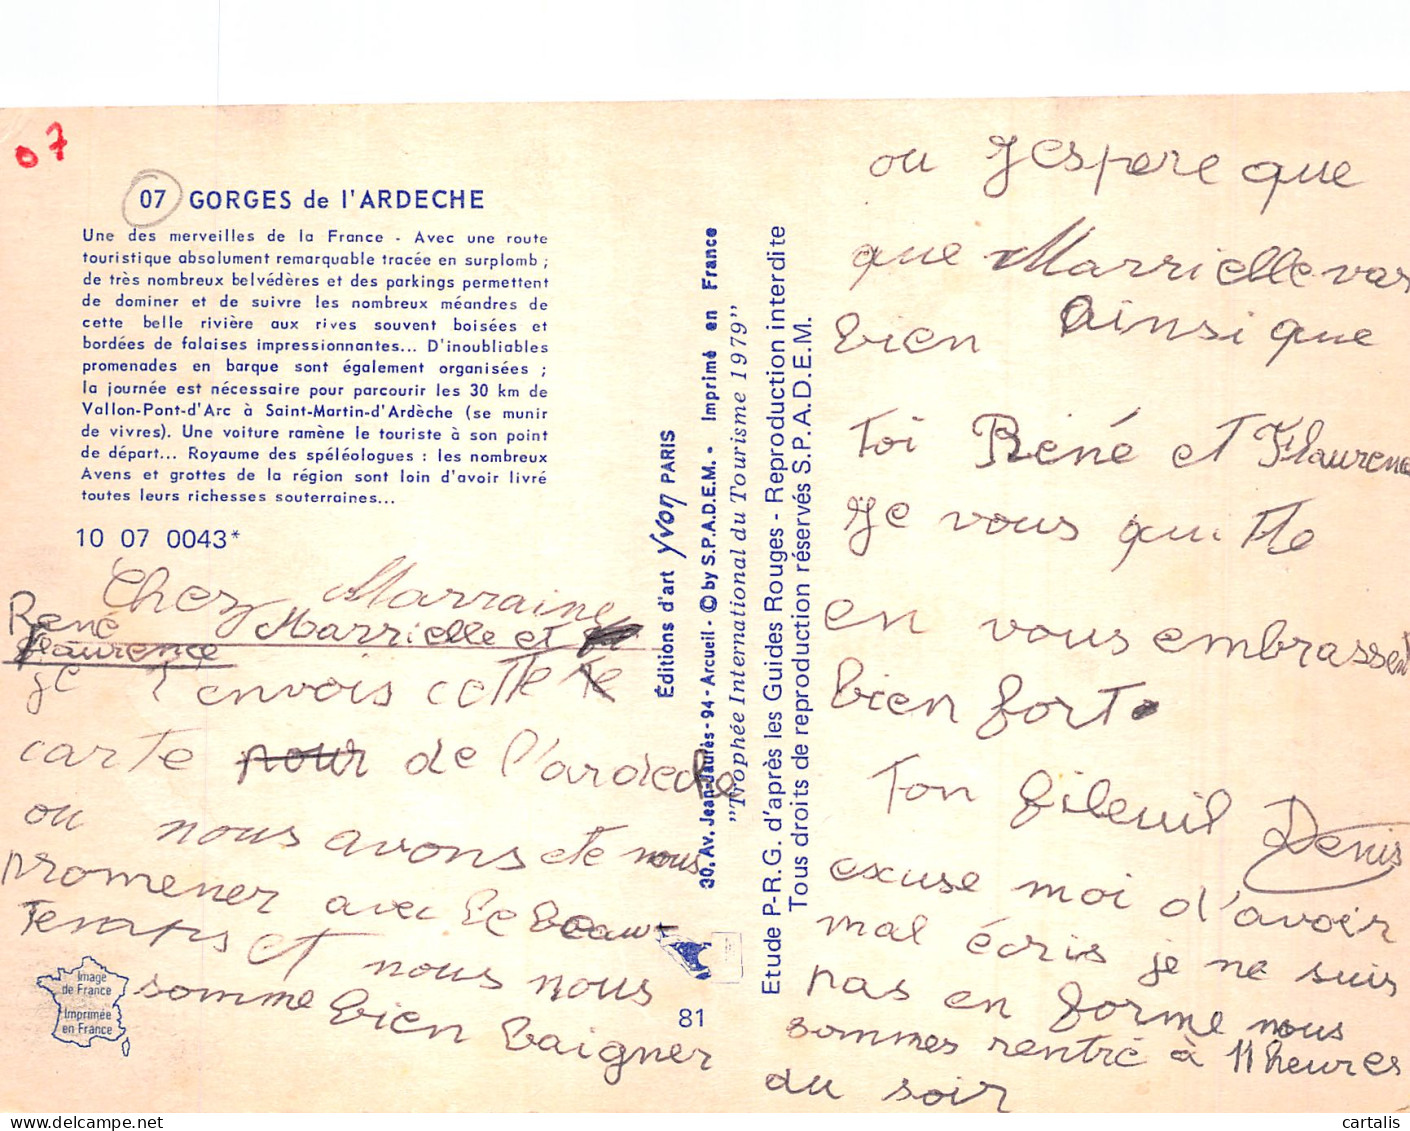 07
07 GORGES de l'ARDECHE
Une des merveilles de la France - Avec une route
touristique absolument remarquable tracée en surplomb ;
de très nombreux belvédères et des parkings permettent
de dominer et de suivre les nombreux méandres de
cette belle rivière aux rives souvent boisées et
bordées de falaises impressionnantes... D'inoubliables
promenades en barque sont également organisées ;
la journée est nécessaire pour parcourir les 30 km de
Vallon-Pont-d'Arc à Saint-Martin-d'Ardèche (se munir
de vivres). Une voiture ramène le touriste à son point
de départ... Royaume des spéléologues : les nombreux
Avens et grottes de la région sont loin d'avoir livré
toutes leurs richesses souterraines...
10 07 0043*
Chez Marraine
René Marrielle et
Flaurence
je t'envois cette te
carte pour de l'ardeche
ou nous avons ete nous
promener avec le beau
temps et nous nous
somme bien baigner
Image
de France
Imprimée
en France
Éditions d'art Yvon PARIS
30, Av. Jean-Jaurès - 94 - Arcueil - © by S.P.A.D.E.M. - Imprimé en France
"Trophée International du Tourisme 1979"
Etude P-R.G. d'après les Guides Rouges - Reproduction interdite
Tous droits de reproduction réservés S.P.A.D.E.M.
81
ou J'espere que
que Marrielle vas
bien ainsi que
toi René et Flaurence
Je vous quitte
en vous embrassent
bien fort
Ton filleuil Denis
excuse moi d'avoir
mal écris je ne suis
pas en forme nous
sommes rentré à 11 heures
du soir
delcampe.net
cartalis